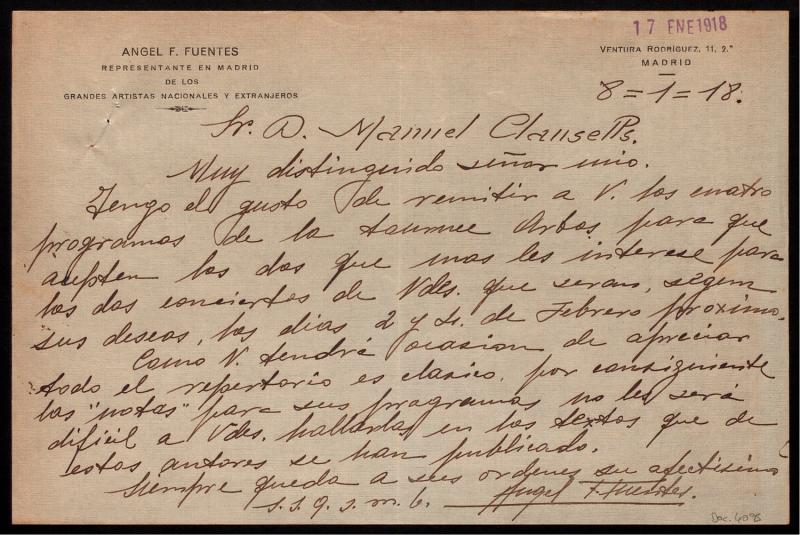 17 ENE 1918
ANGEL F. FUENTES
REPRESENTANTE EN MADRID
DE LOS
GRANDES ARTISTAS NACIONALES Y EXTRANJEROS
VENTURA RODRÍGUEZ, 11, 2.º
MADRID
8=1=18.
Sr. D. Manuel Clausells.
Muy distinguido señor mio.
Tengo el gusto de remitir a V. los cuatro
programas de la tournee Arbos para que
acepten los dos que mas les interese para
los dos conciertos de Vdes. que seran, segun
sus deseos, los dias 2 y 4 de Febrero proximo.
Como V. tendrá ocasion de apreciar
todo el repertorio es clasico, por consiguiente
las "notas" para sus programas no les será
dificil a Vdes. hallarlas en los textos que de
estos autores se han publicado.
Siempre queda a sus ordenes su afectisimo
s. s. q. s. m. b. Angel F. Fuentes.
Doc. 6098